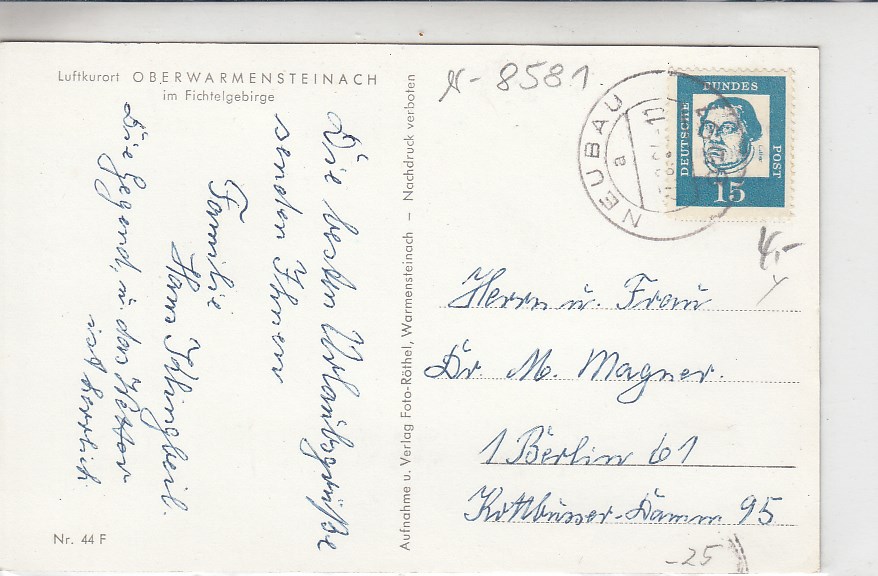 Luftkurort OBERWARMENSTEINACH
im Fichtelgebirge
Die besten Urlaubsgrüße
senden Ihnen
Familie
Hans Klingbeil.
Die Gegend, u. das Wetter
ist herrlich
Nr. 44 F
Aufnahme u. Verlag Foto-Röthel, Warmensteinach — Nachdruck verboten
N-8581
NEUBAU
a
DEUTSCHE
BUNDES
POST
15
4,-
Herrn u. Frau
Dr. M. Magner.
1 Berlin 61
Kottbusser-Damm 95
-25